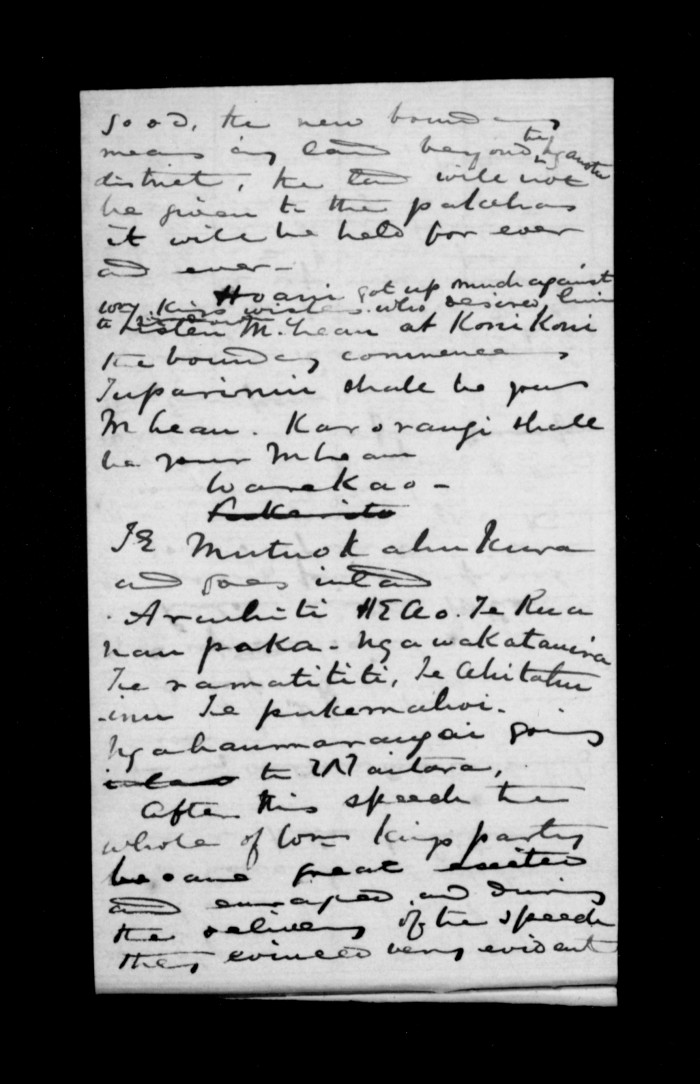 good, the new boundary
means any land beyond the
district, the land will not
be given to the pakehas
it will be held for ever
and ever -
Hoani got up much against
Wm. Kings wishes. who desired him
to listen McLean at Koni Koni
the boundary commences
shall be yours
McLean. Karorangi shall
be your McLean
Warekao -
TE Mutuok ahu Kura
and goes inland
. Arauhiti HEAo. Te Rua
nau paka - Ngawakatauira
Te ramatititi, Te Ahitahu
-inu Te pukemahoi -
Ngahaumarangai going
inland to Mautara,
After this speech the
whole of Wm Kings party
became great excited
and enraged and during
the delivery of the speech
they evinced very evident